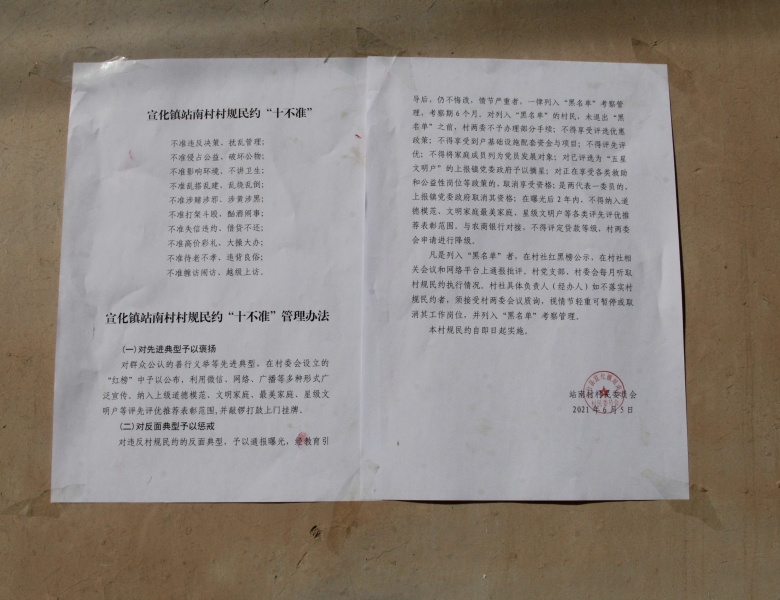 宣化镇站南村村规民约“十不准”
不准违反决策、扰乱管理;
不准侵占公益、破坏公物;
不准影响环境、不讲卫生;
不准乱搭乱建、乱烧乱倒;
不准涉赌涉邪、涉黄涉黑;
不准打架斗殴、酗酒闹事;
不准失信违约、借贷不还;
不准高价彩礼、大操大办;
不准待老不孝、违背良俗;
不准缠访闹访、越级上访。
宣化镇站南村村规民约“十不准”管理办法
(一)对先进典型予以褒扬
对群众公认的善行义举等先进典型，在村委会设立的
“红榜”中予以公布，利用微信、网络、广播等多种形式广
泛宣传。纳入上级道德模范、文明家庭、最美家庭、星级文
明户等评先评优推荐表彰范围,并敲锣打鼓上门挂牌。
(二)对反面典型予以惩戒
对违反村规民约的反面典型，予以通报曝光，经教育引
导后，仍不悔改，情节严重者，一律列入“黑名单”考察管
理，考察期6个月。对列入“黑名单”的村民，未退出“黑
名单”之前，村两委不予办理部分手续；不得享受评选优惠
政策；不得享受到户基础设施配套资金与项目；不得评先评
优；不得将家庭成员列为党员发展对象；对已评选为“五星
文明户”的上报镇党委政府予以摘星；对正在享受各类救助
和公益性岗位等政策的，取消享受资格；是两代表一委员的，
上报镇党委政府取消其资格；在曝光后2年内，不得纳入道
德模范、文明家庭最美家庭、星级文明户等各类评先评优推
荐表彰范围。与农商银行对接，不得评定贷款等级，村两委
会申请进行降级。
凡是列入“黑名单”者，在村社红黑榜公示，在村社相
关会议和网络平台上通报批评。村党支部、村委会每月听取
村规民约执行情况。村社具体负责人（经办人）如不落实村
规民约者，须接受村两委会议质询，视情节轻重可暂停或取
消其工作岗位，并列入“黑名单”考察管理。
本村规民约自即日起实施。
站南村村民委员会
2021年6月5日